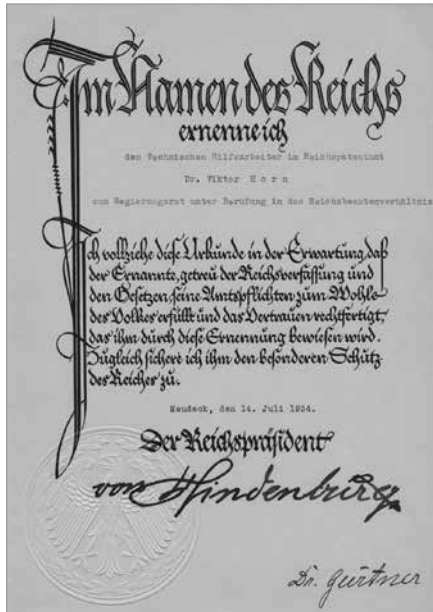 Im Namen des Reichs
ernenne ich
den Technischen Hilfsarbeiter im Reichspatentamt
Dr. Viktor Horn
zum Regierungsrat unter Berufung in das Reichsbeamtenverhältnis
Ich vollziehe diese Urkunde in der Erwartung, daß
der Ernannte, getreu der Reichsverfassung und
den Gesetzen, seine Amtspflichten zum Wohle
des Volkes erfüllt und das Vertrauen rechtfertigt,
das ihm durch diese Ernennung bewiesen wird.
Zugleich sichere ich ihm den besonderen Schutz
des Reiches zu.
Neudeck, den 14. Juli 1934.
Der Reichspräsident
von Hindenburg
Dr. Gürtner